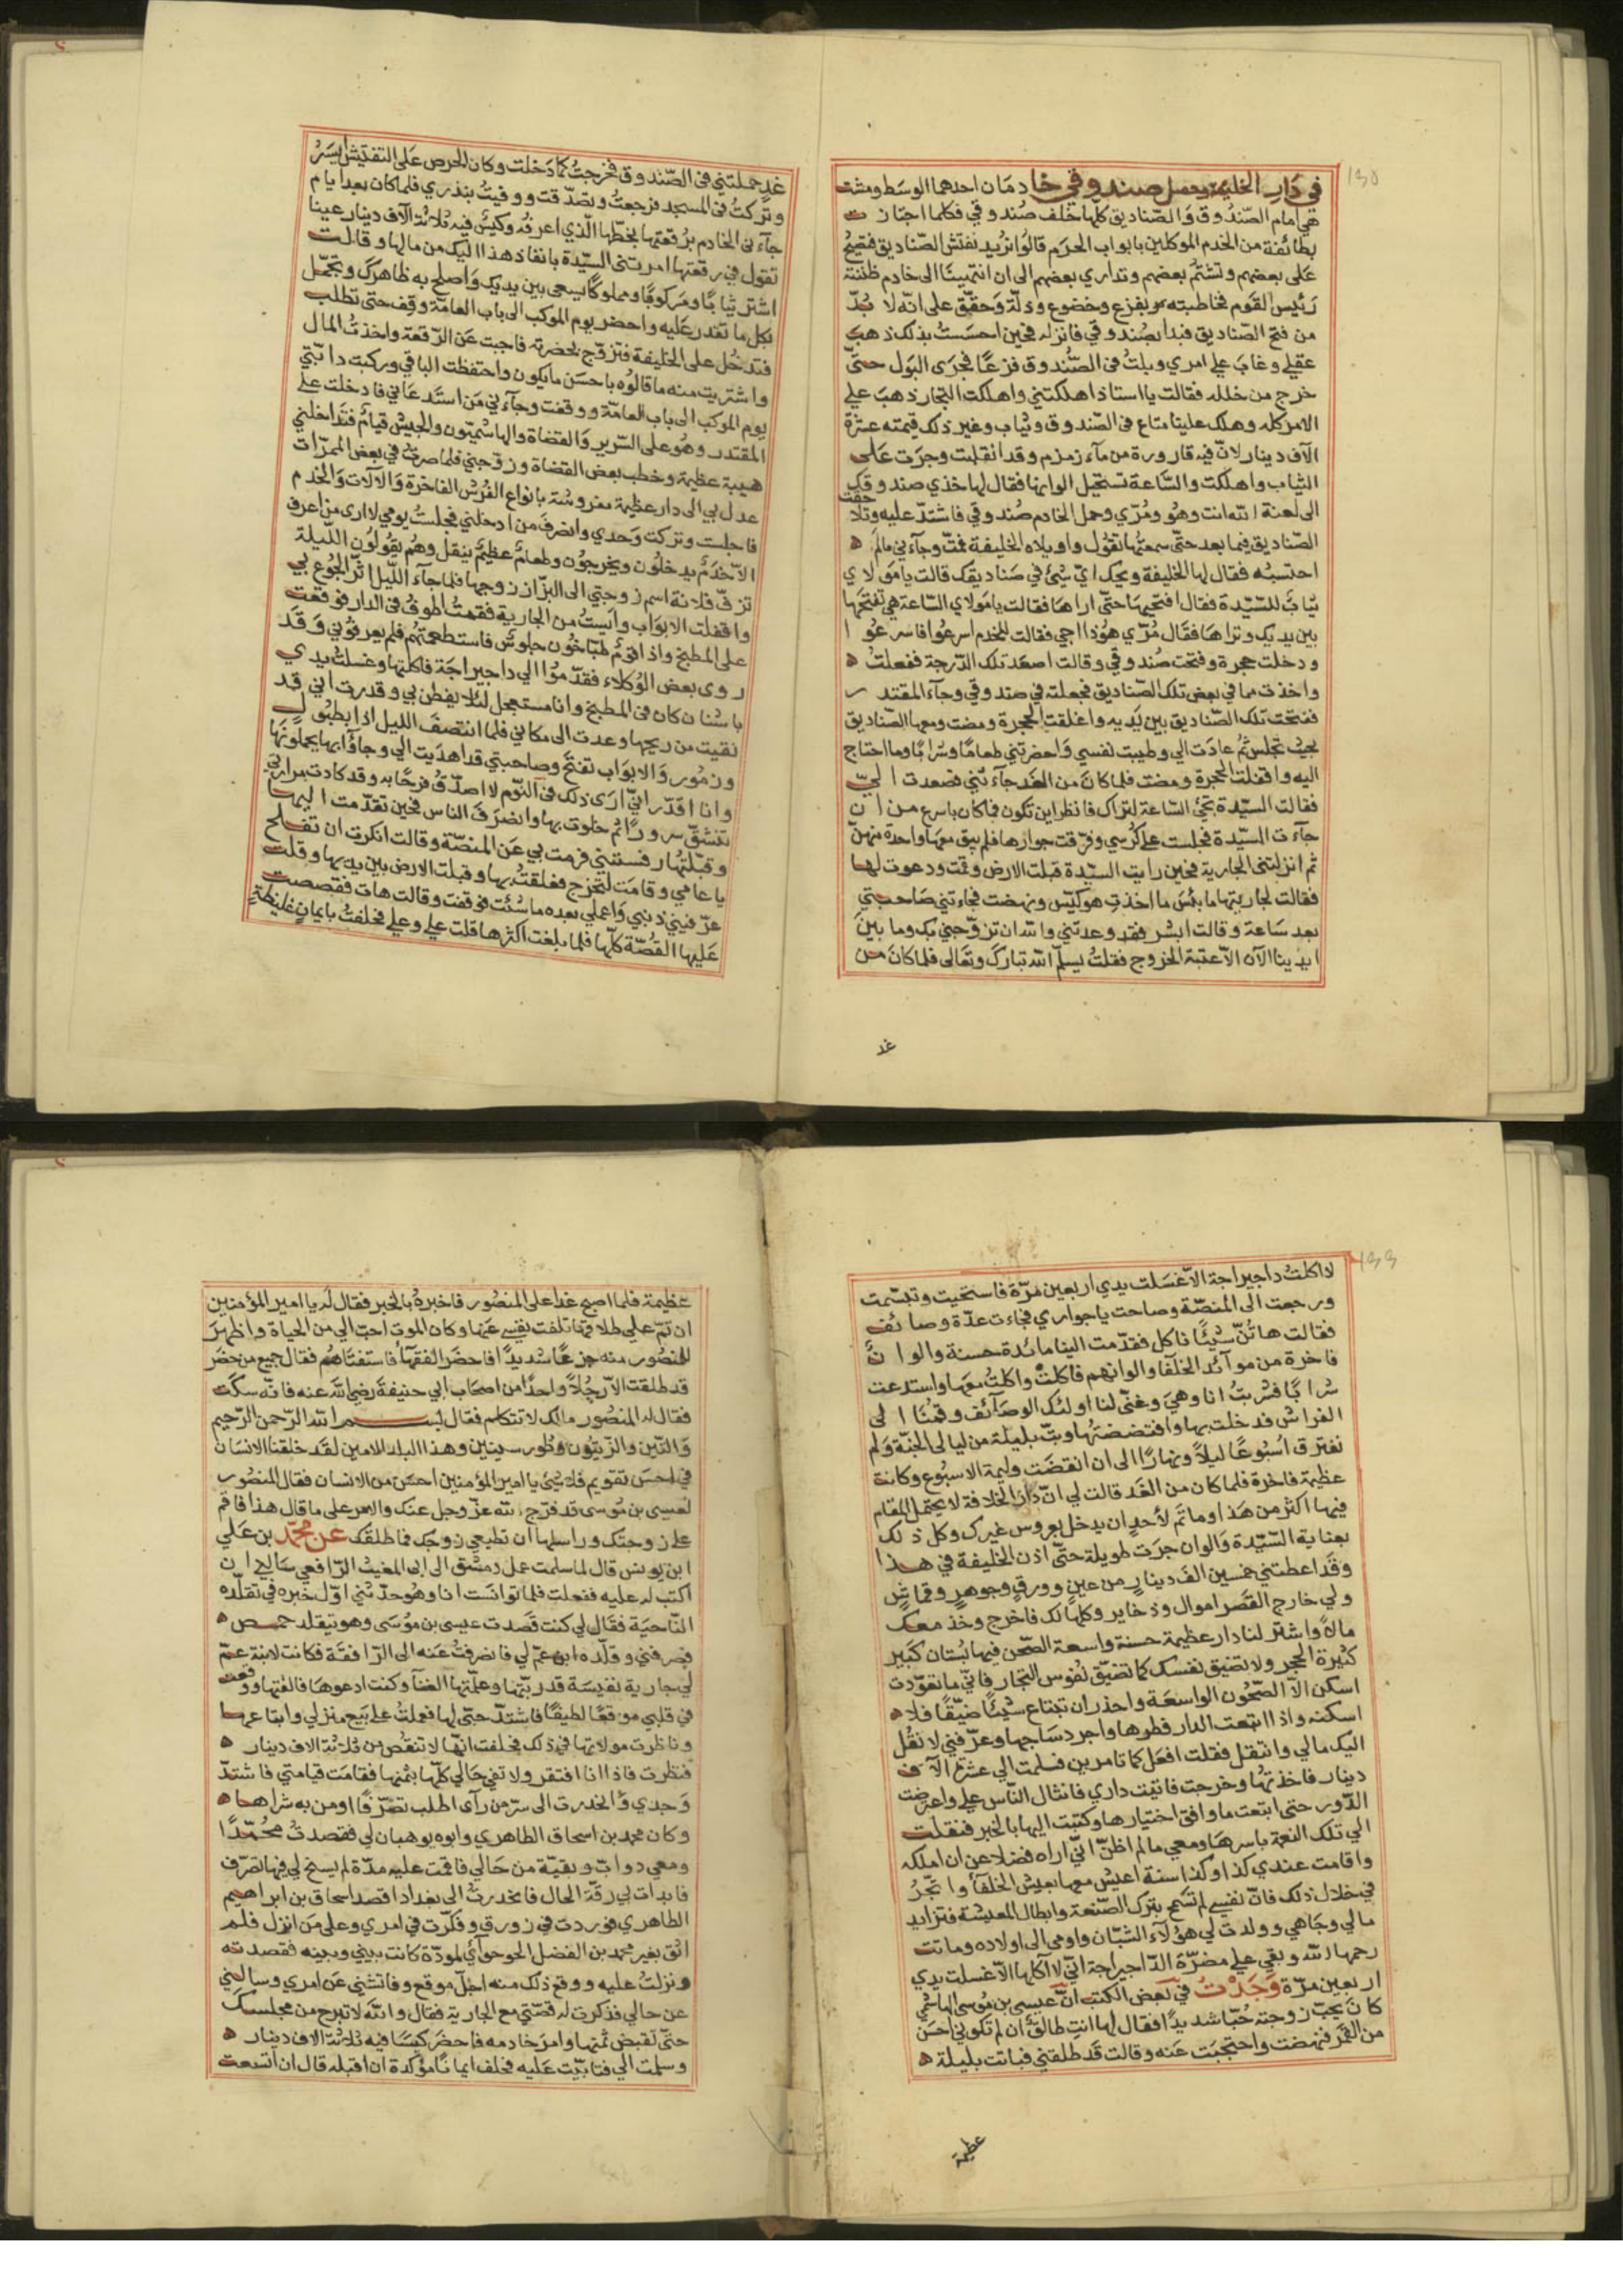 ١٣٥
في دار الخليفة وحمل صندوقي خادمان احدهما الوسط ومشت
هي امام الصندوق والصناديق كلها خلف صندوقي فكلما اجتازت
بطائفة من الخدم الموكلين بابواب الحرم قالوا نريد نفتش الصناديق فتصيح
على بعضهم وتشتم بعضهم وتداري بعضهم الى ان انتهينا الى خادم ظننته
رئيس القوم فخاطبته بفزع وخضوع وذلة وحقق على انه لا بد
من فتح الصناديق فبدا بصندوقي فانزله فحين احسست بذلك ذهب
عقلي وغاب علي امري وبلت في الصندوق فزعا فجرى البول حتى
خرج من خلله فقالت يا استاذ اهلكتني واهلكت التجار ذهب علي
الامر كله وهلك علينا متاع في الصندوق وثياب وغير ذلك قيمته عشرة
الآف دينار لان فيه قارورة من مآء زمزم وقد انقلبت وجرت على
الثياب واهلكت والساعة تستحيل الوانها فقال لها خذي صندوقك
الى لعنة الله انت وهو ومري وحمل الخادم صندوقي فاشتد عليه وتلاحقت
الصناديق فيما بعد حتى سمعتها تقول واويلاه الخليفة فمت وجآءني مالم
احتسبه فقال لها الخليفة ويحك اي شئ في صناديقك قالت يا مولاي
ثياب للسيدة فقال افتحيها حتى اراها فقالت يا مولاي الساعة هي تفتحها
بين يديك وتراها فقال مري هوذا اجي فقالت للخدم اسرعوا فاسرعوا
ودخلت حجرة وفتحت صندوقي وقالت اصعد تلك الدرجة ففعلت
واخذت مما في بعض تلك الصناديق فجعلته في صندوقي وجآء المقتدر
ففتحت تلك الصناديق بين يديه واغلقت الحجرة ومضت ومعها الصناديق
بحيث تجلس ثم عادت الي وطيبت نفسي واحضرتني طعاما وشرابا وما احتاج
اليه واقفلت الحجرة ومضت فلما كان من الغد جآءتني فصعدت الي
فقالت السيدة تجئ الساعة لتراك فانظر اين تكون فما كان باسرع من ان
جآءت السيدة فجلست على كرسي وفرقت جوارها فلم يبق معها واحدة منهن
ثم انزلتني الجارية فحين رايت السيدة قبلت الارض وقمت ودعوت لها
فقالت لجاريتها ما بئس ما اخذت هو كيس ونهضت فجاءتني صاحبتي
بعد ساعة وقالت ابشر فقد وعدتني والله ان تزوجني بك وما بين
ايدينا الآن الا عقبة الخروج فقلت يسلم الله تبارك وتعالى فلما كان من
غد
غد حملتني في الصندوق فخرجت كما دخلت وكان الحرص على التفتيش ايسر
وتركت في المسجد فرجعت وتصدقت ووفيت بنذري فلما كان بعد ايام
جآءني الخادم برقعتها بخطها الذي اعرفه وكيس فيه ثلاثة الآف دينار عينا
تقول في رقعتها امرتني السيدة بانفاذ هذا اليك من مالها وقالت
اشتر ثيابا ومركوبا ومملوكا يسعى بين يديك واصلح به ظاهرك وتجمل
بكل ما تقدر عليه واحضر يوم الموكب الى باب العامة وقف حتى تطلب
فتدخل على الخليفة فتزوج بحضرته فاجبت عن الرقعة واخذت المال
واشتريت منه ما قالوه باحسن ما يكون واحتفظت الباقي وركبت دابتي
يوم الموكب الى باب العامة ووقفت وجآءني من استدعاني فادخلت على
المقتدر وهو على السرير والقضاة والهاشميون والجيش قيام فتداخلني
هيبة عظيمة وخطب بعض القضاة وزوجني فلما صرت في بعض الممرات
عدل بي الى دار عظيمة مفروشة بانواع الفرش الفاخرة والآلات والخدم
فاجلست وتركت وحدي وانصرف من ادخلني فجلست يومي لا ارى من اعرف
الا خدم يدخلون ويخرجون وطعام عظيم ينقل وهم يقولون الليلة
تزف فلانة اسم زوجتي الى البزاز زوجها فلما جآء الليل اثر الجوع بي
واقفلت الابواب وايست من الجارية فقمت اطوف في الدار فوقعت
على المطبخ واذا قوم طباخون جلوس فاستطعمتهم فلم يعرفوني وقد
روى بعض الوكلاء فقدموا الي داجيراجة فاكلتها وغسلت يدي
باشنان كان في المطبخ وانا مستعجل لئلا يفطن بي وقدرت اني قد
نقيت من ريحها وعدت الى مكاني فلما انتصف الليل اذا بطبول
وزمور والابواب تفتح وصاحبتي قد اهديت الي وجآؤا بها يجلونها
وانا اقدر اني ارى ذلك في النوم لا اصدق فرحا به وقد كادت مرارتي
تنشق سرورا ثم خلوت بها وانصرف الناس فحين تقدمت اليها
وقبلتها رفستني فرمت بي عن المنصة وقالت انكرت ان تفلح
يا عامي وقامت لتخرج فعلقت بها وقبلت الارض بين يديها وقلت
عرفيني ذنبي واعملي بعده ما شئت فوقفت وقالت هات فقصصت
عليها القصة كلها فلما بلغت اكثرها قلت علي وعلي فحلفت بايمان غليظة
١٣٦
لا اكلت داجيراجة الا غسلت يدي اربعين مرة فاستحيت وتبسمت
ورجعت الى المنصة وصاحت يا جواري فجاءت عدة وصائف
فقالت هاتن شيئا ناكل فقدمت الينا مائدة حسنة والوان
فاخرة من موآئد الخلفا والوانهم فاكلت واكلت معها واستدعت
شرابا فشربت انا وهي وغنى لنا اولئك الوصآئف وقمنا الى
الفراش فدخلت بها وافتضضتها وبت بليلة من ليالي الجنة ولم
نفترق اسبوعا ليلا ونهارا الى ان انقضت وليمة الاسبوع وكانت
عظيمة فاخرة فلما كان من الغد قالت لي ان دار الخلافة لا يحتمل المقام
فيها اكثر من هذا وما تم لأحد ان يدخل بعروس غيرك وكل ذلك
بعناية السيدة والوان جرت طويلة حتى اذن الخليفة في هذا
وقد اعطتني خمسين الف دينار من عين وورق وجوهر وقماش
ولي خارج القصر اموال وذخاير وكلها لك فاخرج وخذ معك
مالا واشتر لنا دار عظيمة حسنة واسعة الصحن فيها بستان كبير
كثيرة الحجر ولا تضيق نفسك كما تضيق نفوس التجار فاني ما تعودت
اسكن الا الصحون الواسعة واحذر ان تبتاع شيئا ضيقا فلا
اسكنه واذا ابتعت الدار فطوها واجرد ساجها وعرفني لانقل
اليك مالي وانتقل فقلت افعل كما تامرين فسلمت الي عشرة الآف
دينار فاخذتها وخرجت فاتيت داري فانثال الناس علي واعترضت
الدور حتى ابتعت ما وافق اختيارها وكتبت اليها بالخبر فنقلت
الي تلك النعمة باسرها ومعي مالم اظن اني اراه فضلا عن ان املكه
واقامت عندي كذا وكذا سنة اعيش معها بعيش الخلفآ واتجر
في خلال ذلك فان نفسي لم تسمح بترك الصنعة وابطال المعيشة فتزايد
مالي وجاهي وولدت لي هؤلآء الشبان واومى الى اولاده وماتت
رحمها الله وبقي علي مضرة الداجيراجة اني لا آكلها الا غسلت يدي
اربعين مرة وجدت في بعض الكتب ان عيسى بن موسى الهاشمي
كان يحب زوجته حبا شديدا فقال لها انت طالق ان لم تكوني احسن
من القمر فنهضت واحتجبت عنه وقالت قد طلقتني فباتت بليلة
عظيمة
عظيمة فلما اصبح غدا على المنصور فاخبره بالخبر فقال له يا امير المؤمنين
ان تم علي طلاقها تلفت نفسي عنها وكان الموت احب الي من الحياة واظهر
للمنصور منه جزعا شديدا فاحضر الفقهآء فاستفتاهم فقال جميع من حضر
قد طلقت الا رجلا واحدا من اصحاب ابي حنيفة رضي الله عنه فانه سكت
فقال له المنصور مالك لا تتكلم فقال بسم الله الرحمن الرحيم
والتين والزيتون وطور سينين وهذا البلد الامين لقد خلقنا الانسان
في احسن تقويم فلا شئ يا امير المؤمنين احسن من الانسان فقال المنصور
لعيسى بن موسى قد فرج الله عز وجل عنك والامر على ما قال هذا فاقم
على زوجتك وراسلها ان تطيعي زوجك فما طلقك عن محمد بن علي
ابن يونس قال لما سلمت عمل دمشق الى ابي المغيث الرافعي سالني ان
اكتب له عليه ففعلت فلما توانست انا وهو حدثني اول خبره في تقلده
الناحية فقال لي كنت قصدت عيسى بن موسى وهو يتقلد حمص
فصرفني وقلده ابن عم لي فانصرفت عنه الى الرافقة فكانت لابنة عم
لي جارية نفيسة قد ربتها وعلمتها الغنآ وكنت ادعوها فالفتها ووقعت
في قلبي موقعا لطيفا فاشتد حبي لها فعملت على بيع منزلي وابتاعها
وناظرت مولاتها في ذلك فحلفت انها لا تنقص من ثلاثة الاف دينار
فنظرت فاذا انا افتقر ولا تفي حالي كلها بثمنها فقامت قيامتي فاشتد
وجدي وانحدرت الى سر من رآى اطلب تصرفا او من به شراها
وكان محمد بن اسحاق الطاهري وابوه يوهبان لي فقصدت محمدا
ومعي دواب وبقية من حالي فاقمت عليه مدة لم يسنح لي فيها تصرف
فابدات لي رقة الحال فانحدرت الى بغداد اقصد اسحاق بن ابراهيم
الطاهري فوردت في زورق وفكرت في امري وعلى من انزل فلم
اثق بغير محمد بن الفضل الجرجرآئي لمودة كانت بيني وبينه فقصدته
ونزلت عليه ووقع ذلك منه اجل موقع وفاتشني عن امري وسالني
عن حالي فذكرت له قصتي مع الجارية فقال والله لا تبرح من مجلسك
حتى تقبض ثمنها وامر خادمه فاحضر كيسا فيه ثلاثة الاف دينار
وسلمت الي فتابيت عليه فحلف ايمانا مؤكدة ان اقبله قال ان اتسعت